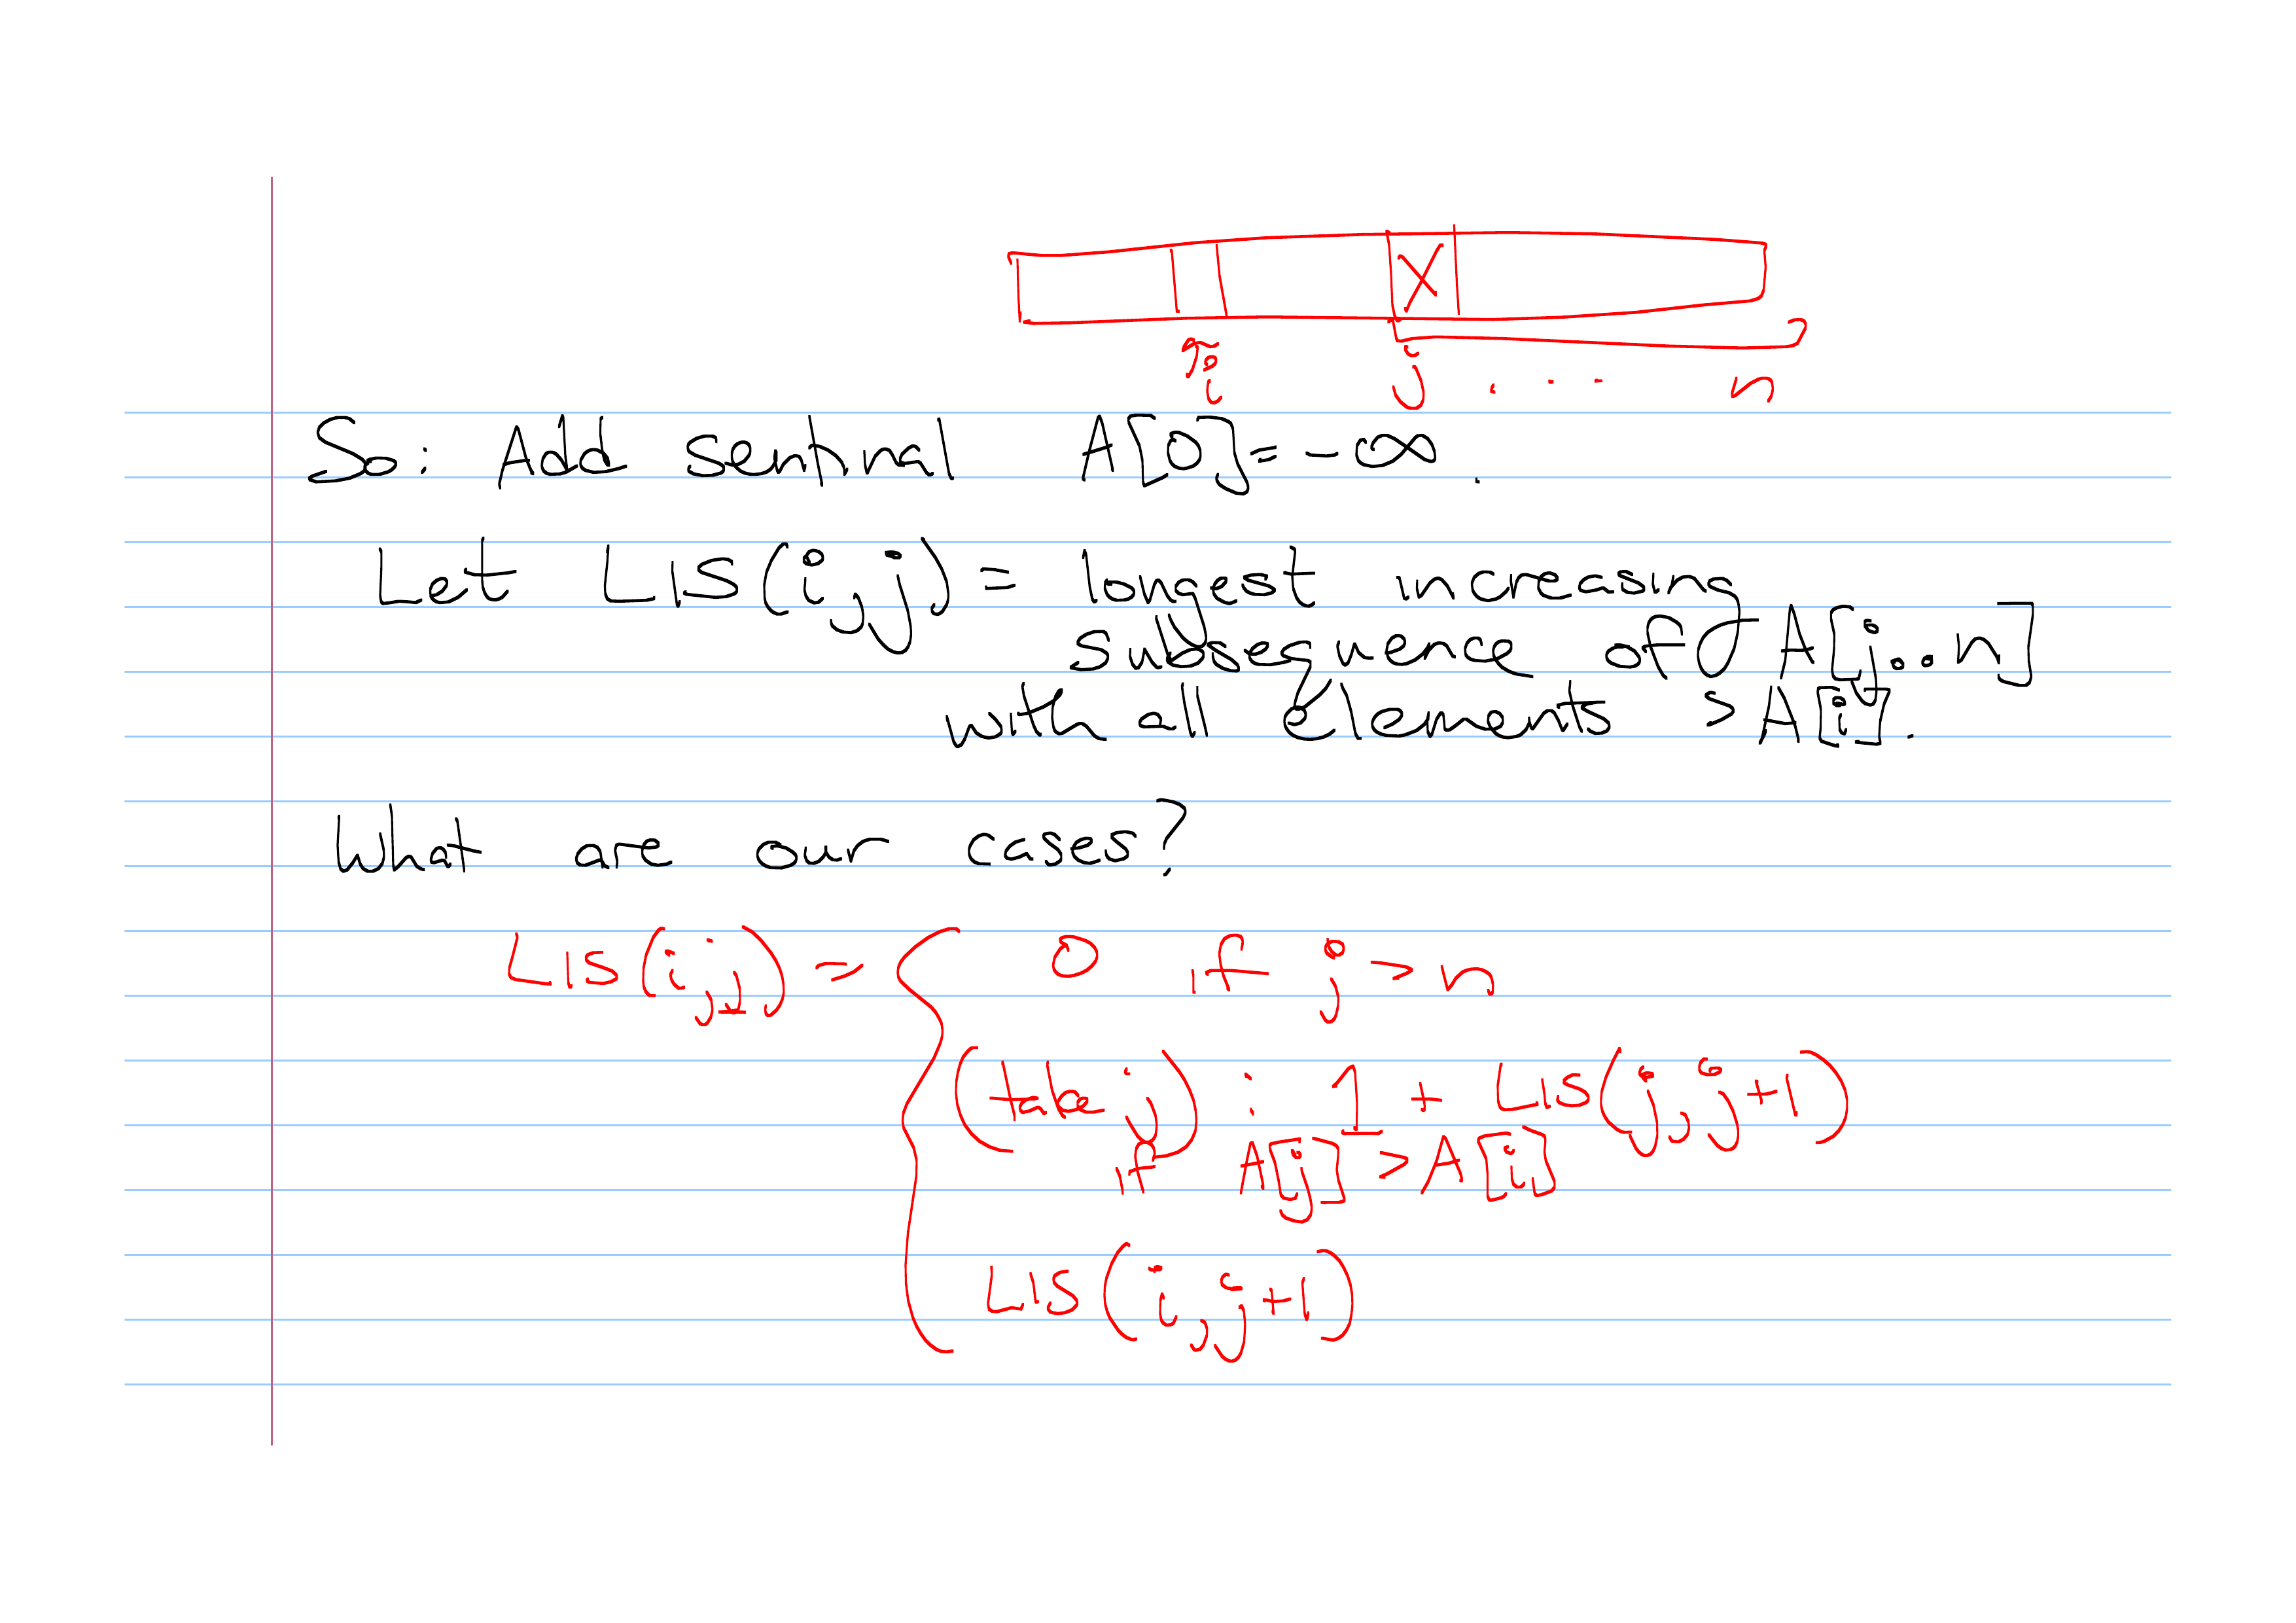 i j . . . n
So: Add sentinal A[0]=-∞.
Let LIS(i,j) = longest increasing
subsequence of A[j..n]
with all elements >A[i].
What are our cases?
LIS(i,j) = { 0 if j>n
(take j) : 1 + LIS(j,j+1)
if A[j]>A[i]
LIS(i,j+1)